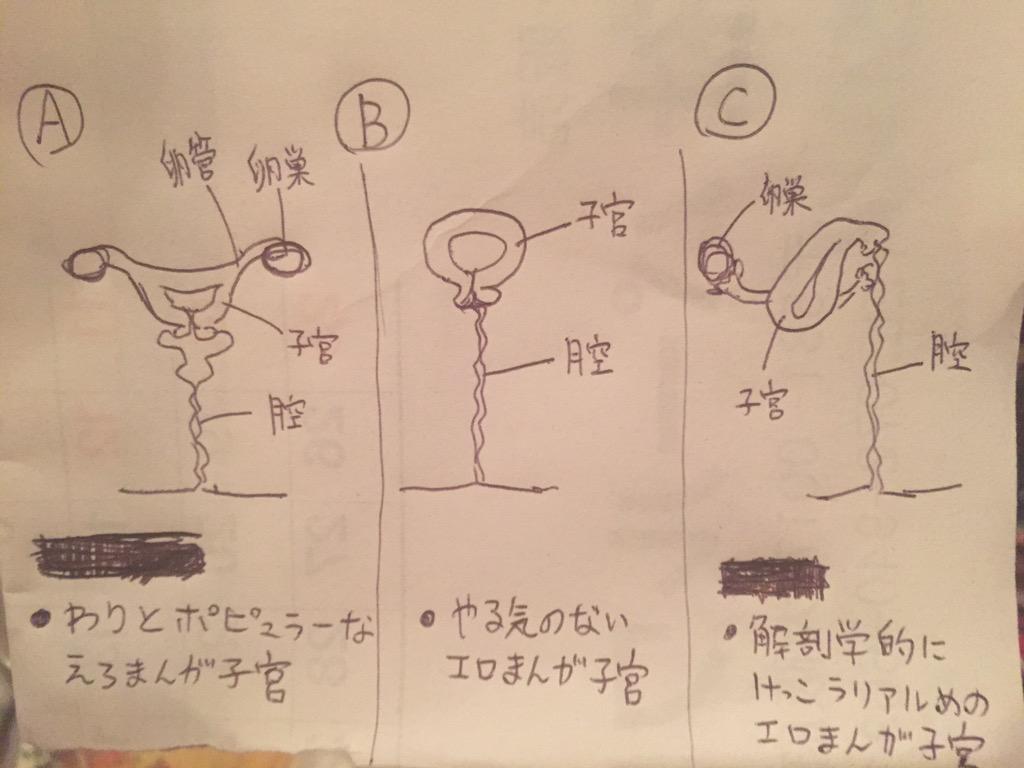 A
卵管
卵巣
子宮
膣
わりとポピュラーな
えろまんが子宮
B
子宮
膣
やる気のない
エロまんが子宮
C
卵巣
子宮
膣
解剖学的に
けっこうリアルめの
エロまんが子宮